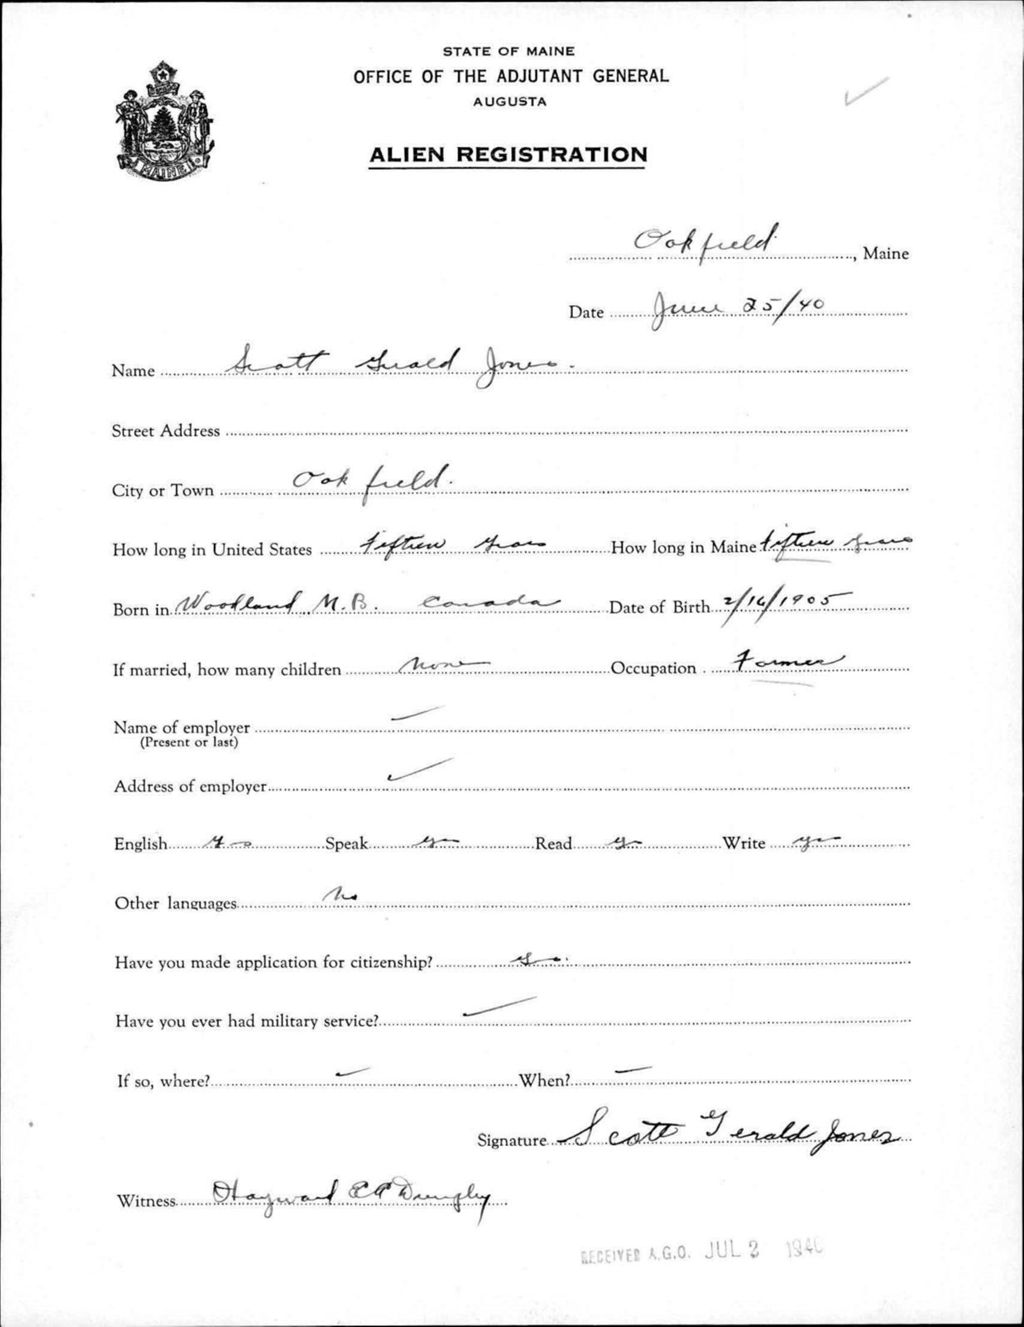 STATE OF MAINE
OFFICE OF THE ADJUTANT GENERAL
AUGUSTA
ALIEN REGISTRATION
MAINE
Oakfield, Maine
Date June 25/40
Name Scott Gerald Jones.
Street Address
City or Town Oakfield.
How long in United States Fifteen Years How long in Maine Fifteen Years
Born in Woodland N.B. Canada Date of Birth 2/16/1905
If married, how many children None Occupation Farmer
Name of employer
(Present or last)
Address of employer
English Yes Speak Yes Read Yes Write Yes
Other languages No
Have you made application for citizenship? Yes.
Have you ever had military service?
If so, where? When?
Signature Scott Gerald Jones
Witness Hayward
RECEIVED A.G.O. JUL 2 1940